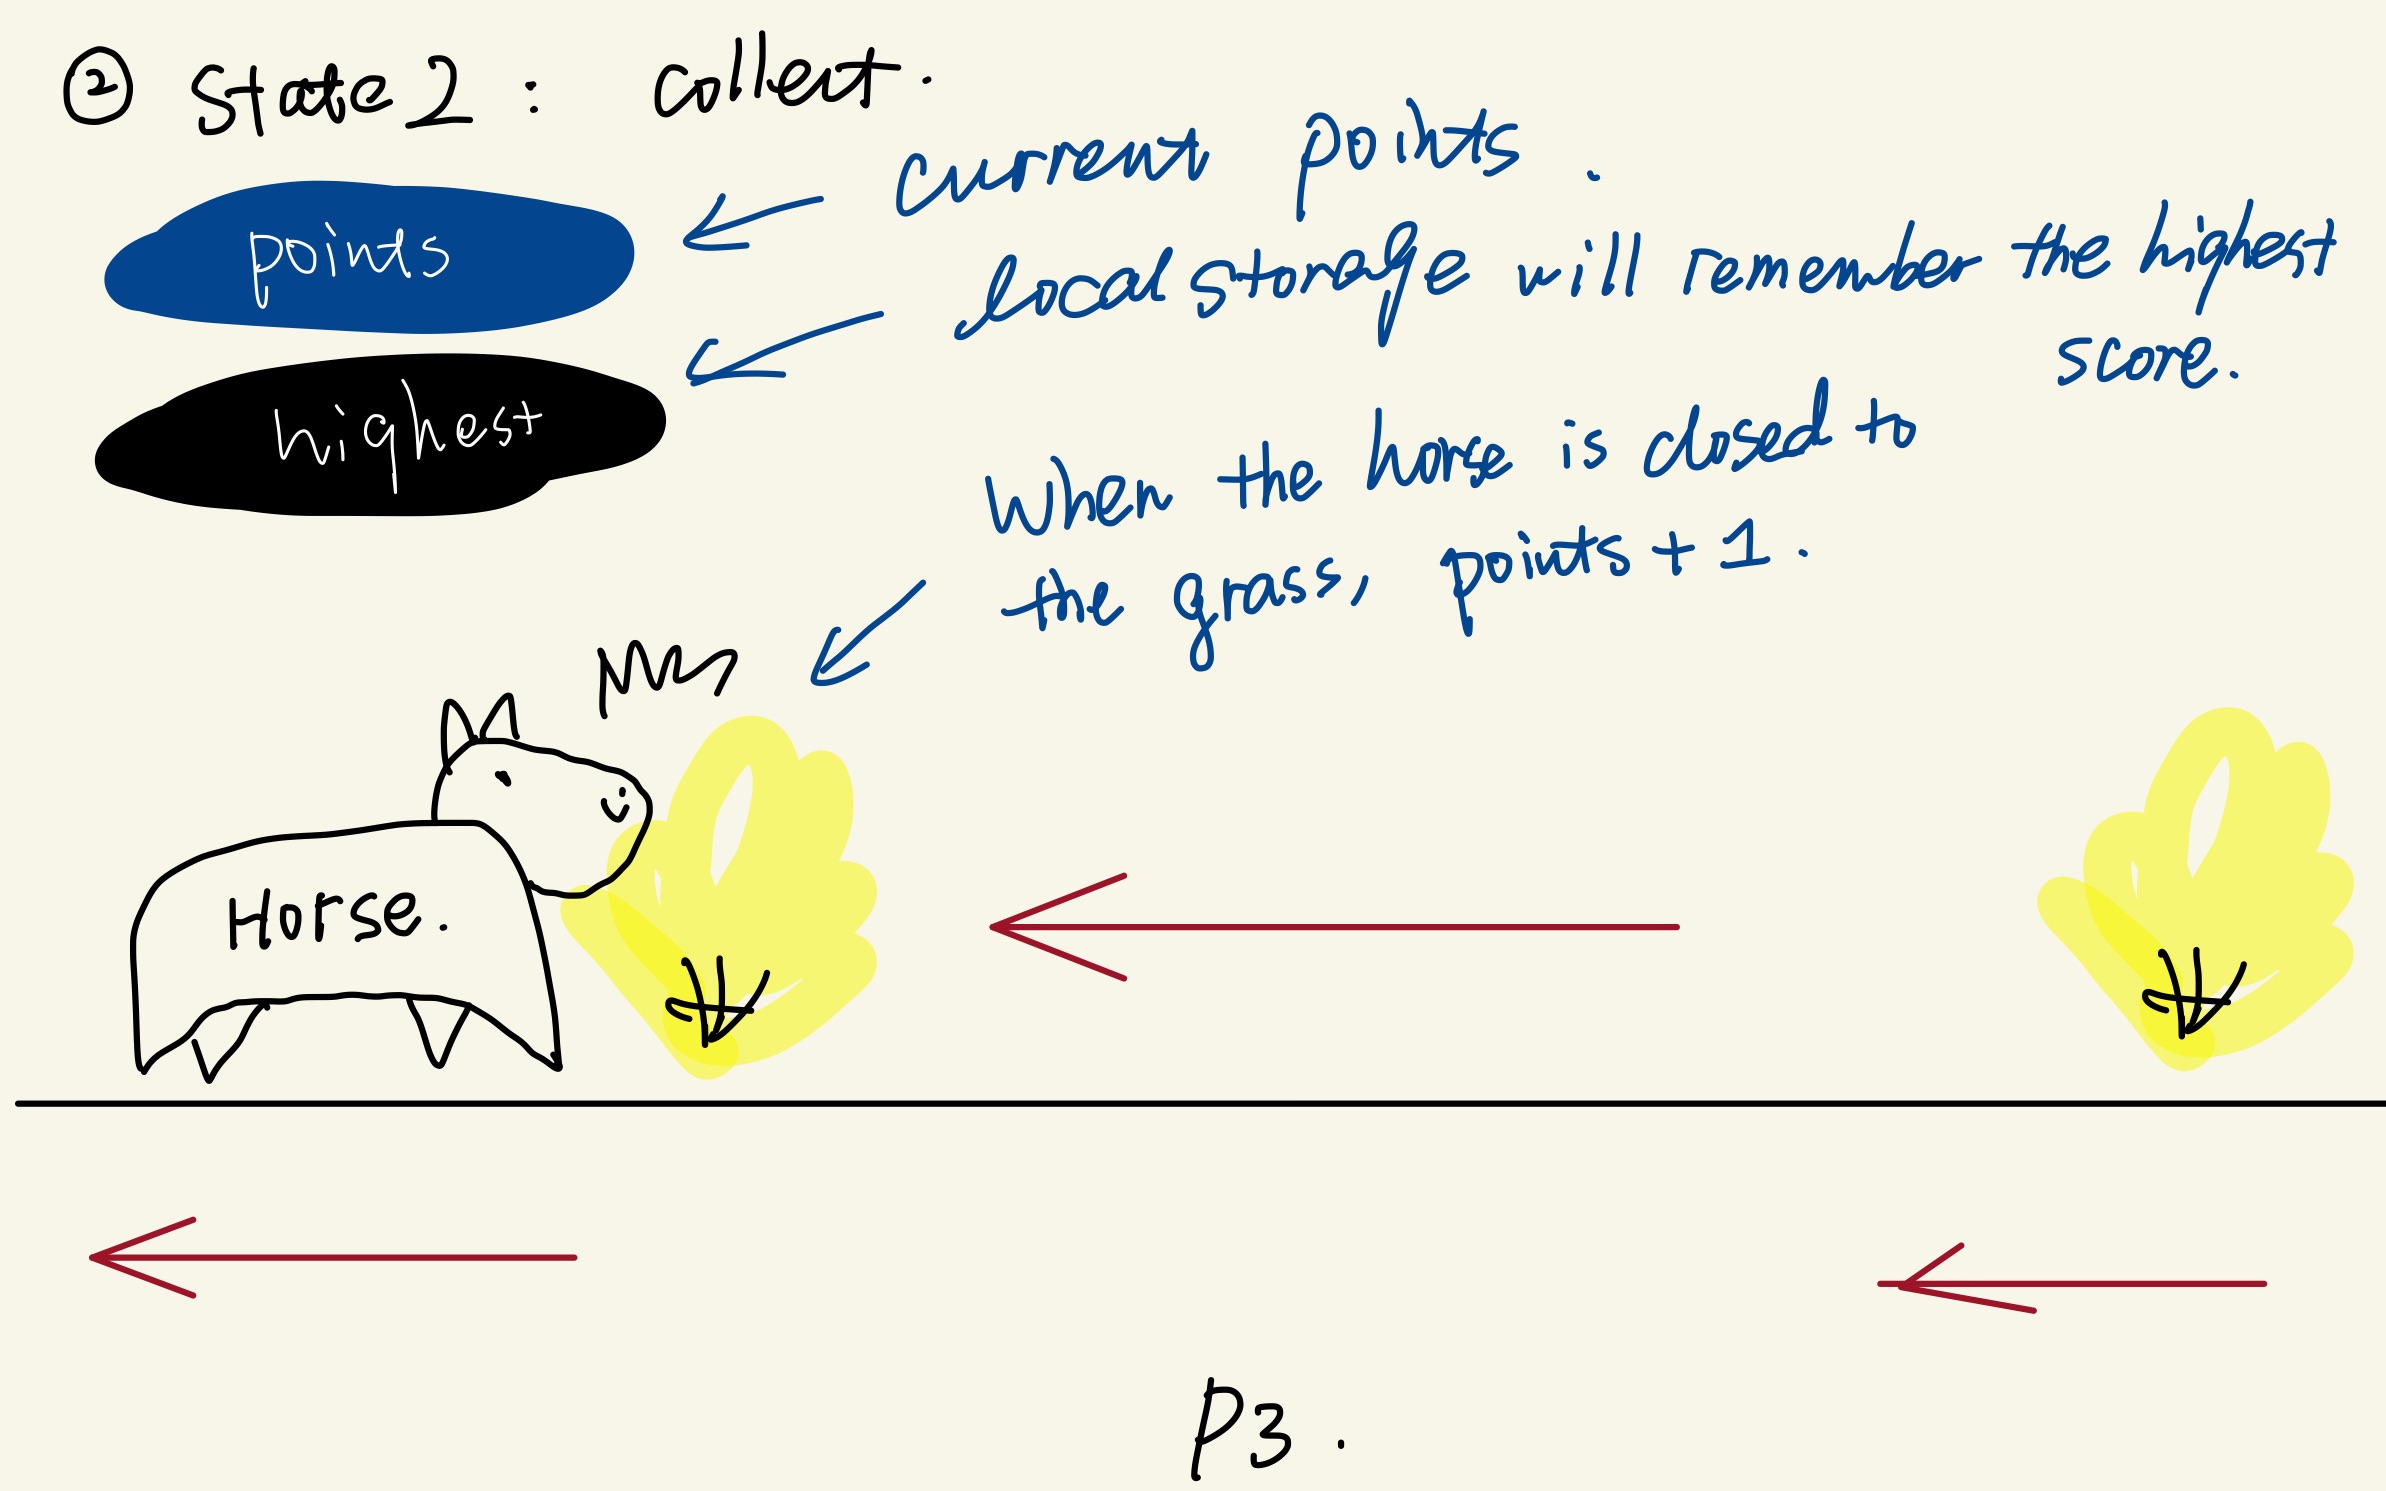 ② State 2 : collect.
points
current points.
highest
local storage will remember the highest
score.
When the horse is closed to
the grass, points + 1.
Horse.
P3.